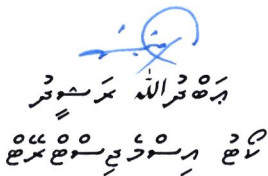 ޢަބްދުﷲ ރަޝީދު
ކޯޓު އިސްމެޖިސްޓްރޭޓް